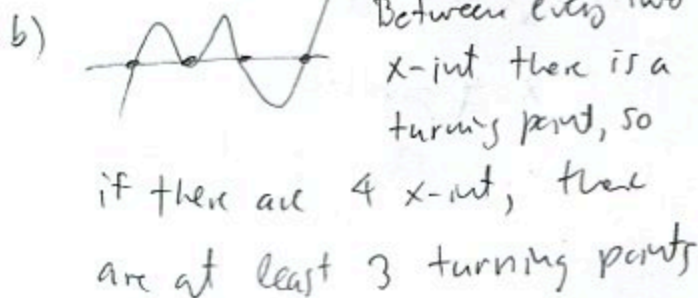 b) Between every two
x-int there is a
turning point, so
if there are 4 x-int, there
are at least 3 turning points